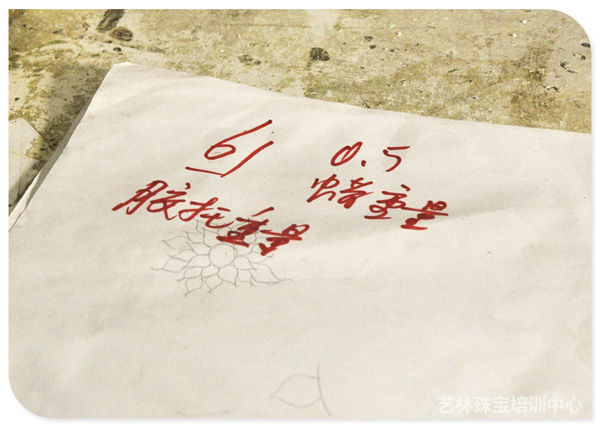 61 0.5
胶托重量 蜡重量
艺林珠宝培训中心